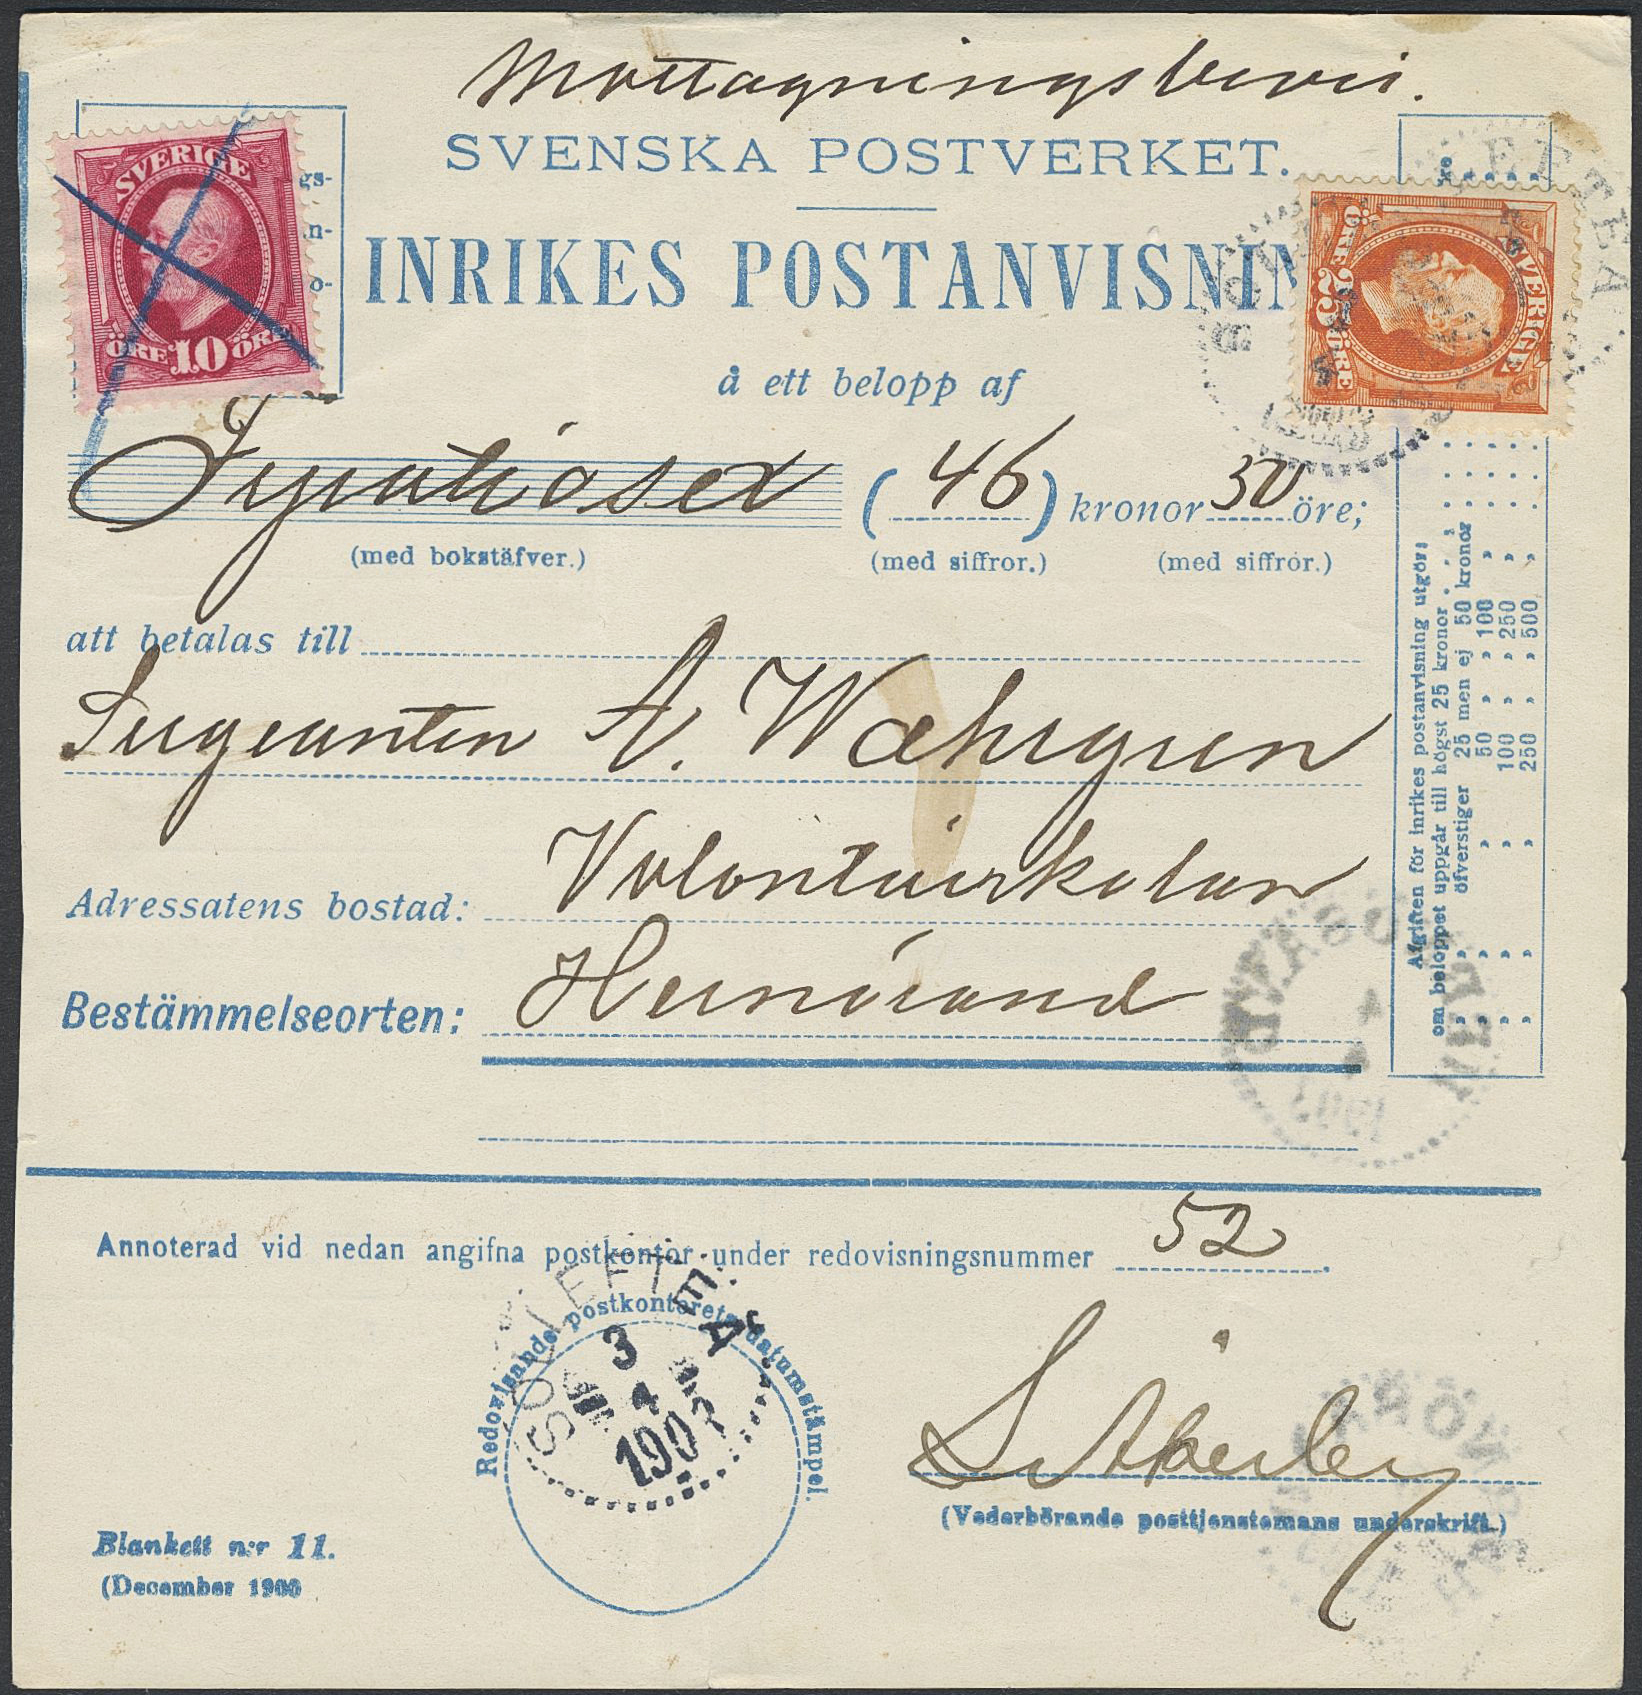 Mottagningsbevis.
SVENSKA POSTVERKET.
INRIKES POSTANVISNIN
SVERIGE
ÖRE 10 ÖRE
gs-
n-
o-
SVERIGE
ÖRE 25 ÖRE
å ett belopp af
Fyratiosex (46) kronor 30 öre;
(med bokstäfver.) (med siffror.) (med siffror.)
att betalas till
Sergeanten A. Wæhrgren
Adressatens bostad: Volontärskolan
Bestämmelseorten: Hernösand
Afgiften för inrikes postanvisning utgör:
om beloppet uppgår till högst 25 kronor . . .
„ „ öfverstiger 25 men ej 50 kronor
„ „ „ 50 „ „ 100 „
„ „ „ 100 „ „ 250 „
„ „ „ 250 „ „ 500 „
Annoterad vid nedan angifna postkontor under redovisningsnummer 52.
Redovisande postkontorets datumstämpel.
SKELLEFTEÅ
3
4
1907
(Vederbörande posttjenstemans underskrift.)
Blankett n:r 11.
(December 1900